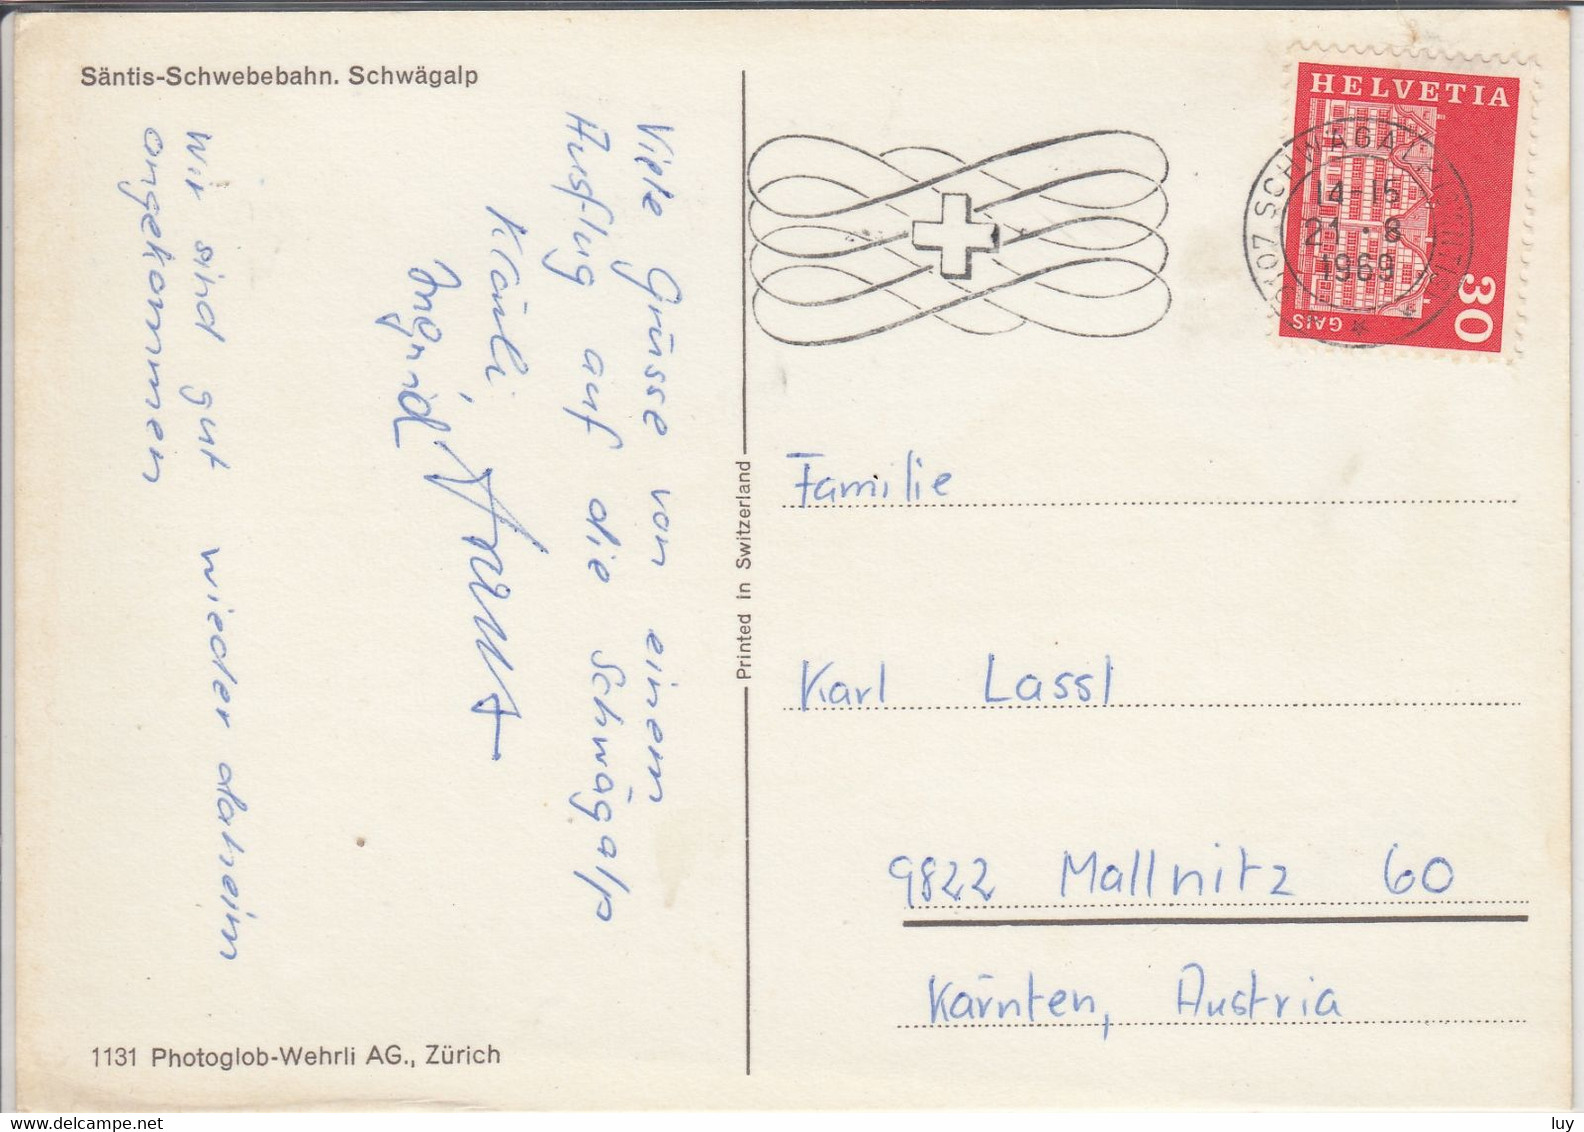 Säntis-Schwebebahn. Schwägalp
Viele Grüsse von einem
Ausflug auf die Schwägalp
Klärli,
Ingrid
wir sind gut wieder daheim
angekommen
1131 Photoglob-Wehrli AG., Zürich
Printed in Switzerland
HELVETIA
30
GAIS
SCHWÄGALP
14-15
21·8
1969
Familie
Karl Lassl
9822 Mallnitz 60
Kärnten, Austria
www.delcampe.net
luy